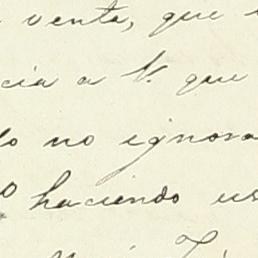 venta, que
cia a V. que
lo no ignora
haciendo us